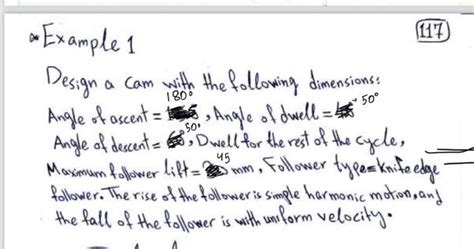 Example 1
117
Design a Cam with the following dimensions:
180° 50°
Angle of ascent = , Angle of dwell =
50°
Angle of descent = , Dwell for the rest of the cycle,
45
Maximum follower lift = mm, Follower type = knife edge
follower. The rise of the follower is simple harmonic motion, and
the fall of the follower is with uniform velocity.